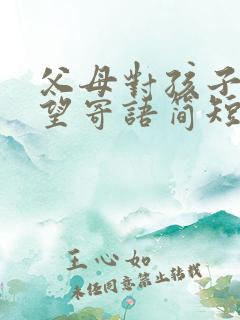 父母對孩子
望寄語简短
王心如
未经同意禁止转载